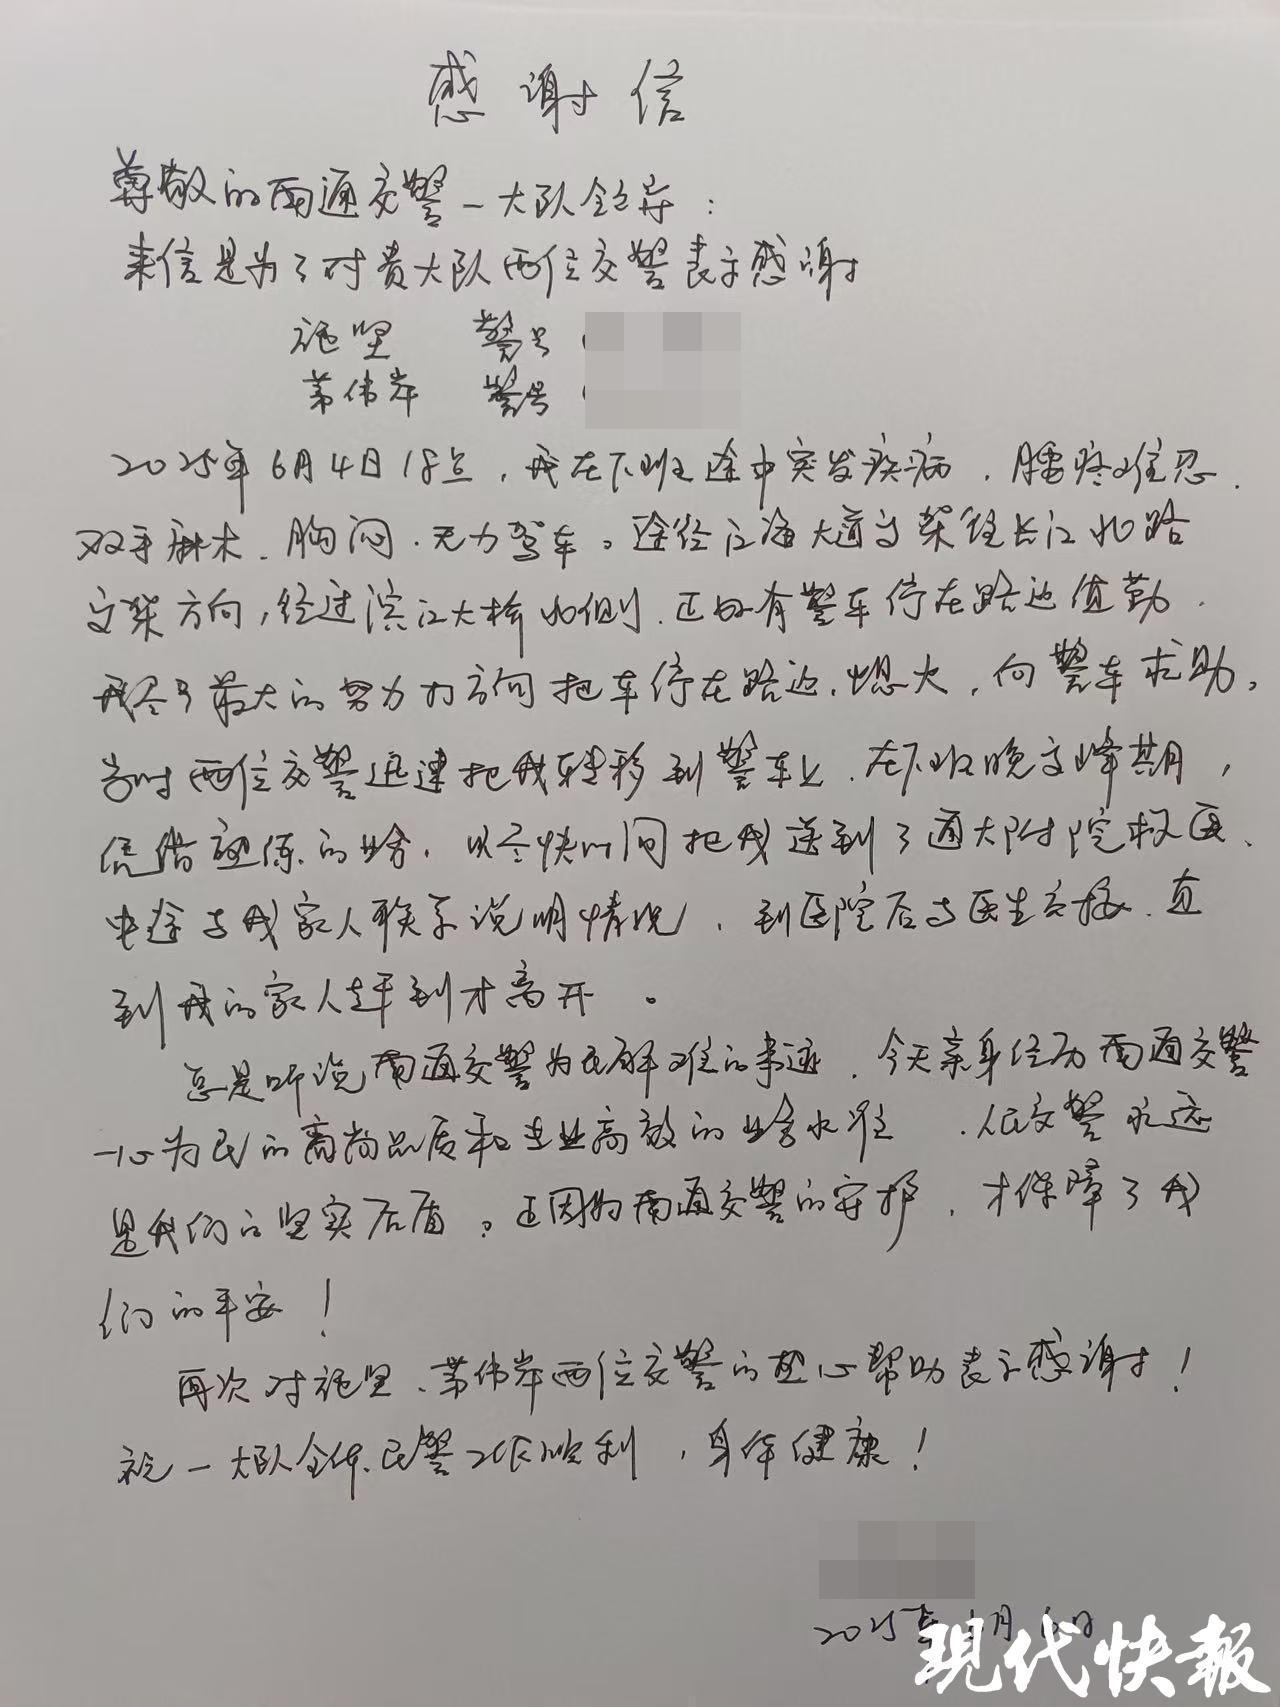 感谢信
尊敬的南通交警一大队领导：
来信是为了对贵大队两位交警表示感谢
施坚 警号
茅伟岸 警号
2025年6月4日18点，我在下班途中突发疾病，腰疼难忍，
双手麻木、胸闷、无力驾车。途径江海大道高架往长江北路
高架方向，经过滨江大桥北侧，正好有警车停在路边值勤，
我尽了最大的努力打方向把车停在路边，熄火，向警车求助。
当时两位交警迅速把我转移到警车上，在下班晚高峰期，
凭借熟练的业务，以最快时间把我送到了通大附院救医，
中途与我家人联系说明情况，到医院后与医生交接，直
到我的家人赶到才离开。
总是听说南通交警为民解难的事迹，今天亲身经历南通交警
一心为民的高尚品质和专业高效的业务水准，人民交警永远
是我们的坚实后盾。正因为南通交警的守护，才保障了我
们的平安！
再次对施坚、茅伟岸两位交警的热心帮助表示感谢！
祝一大队全体民警工作顺利，身体健康！
2025年6月6日
现代快报